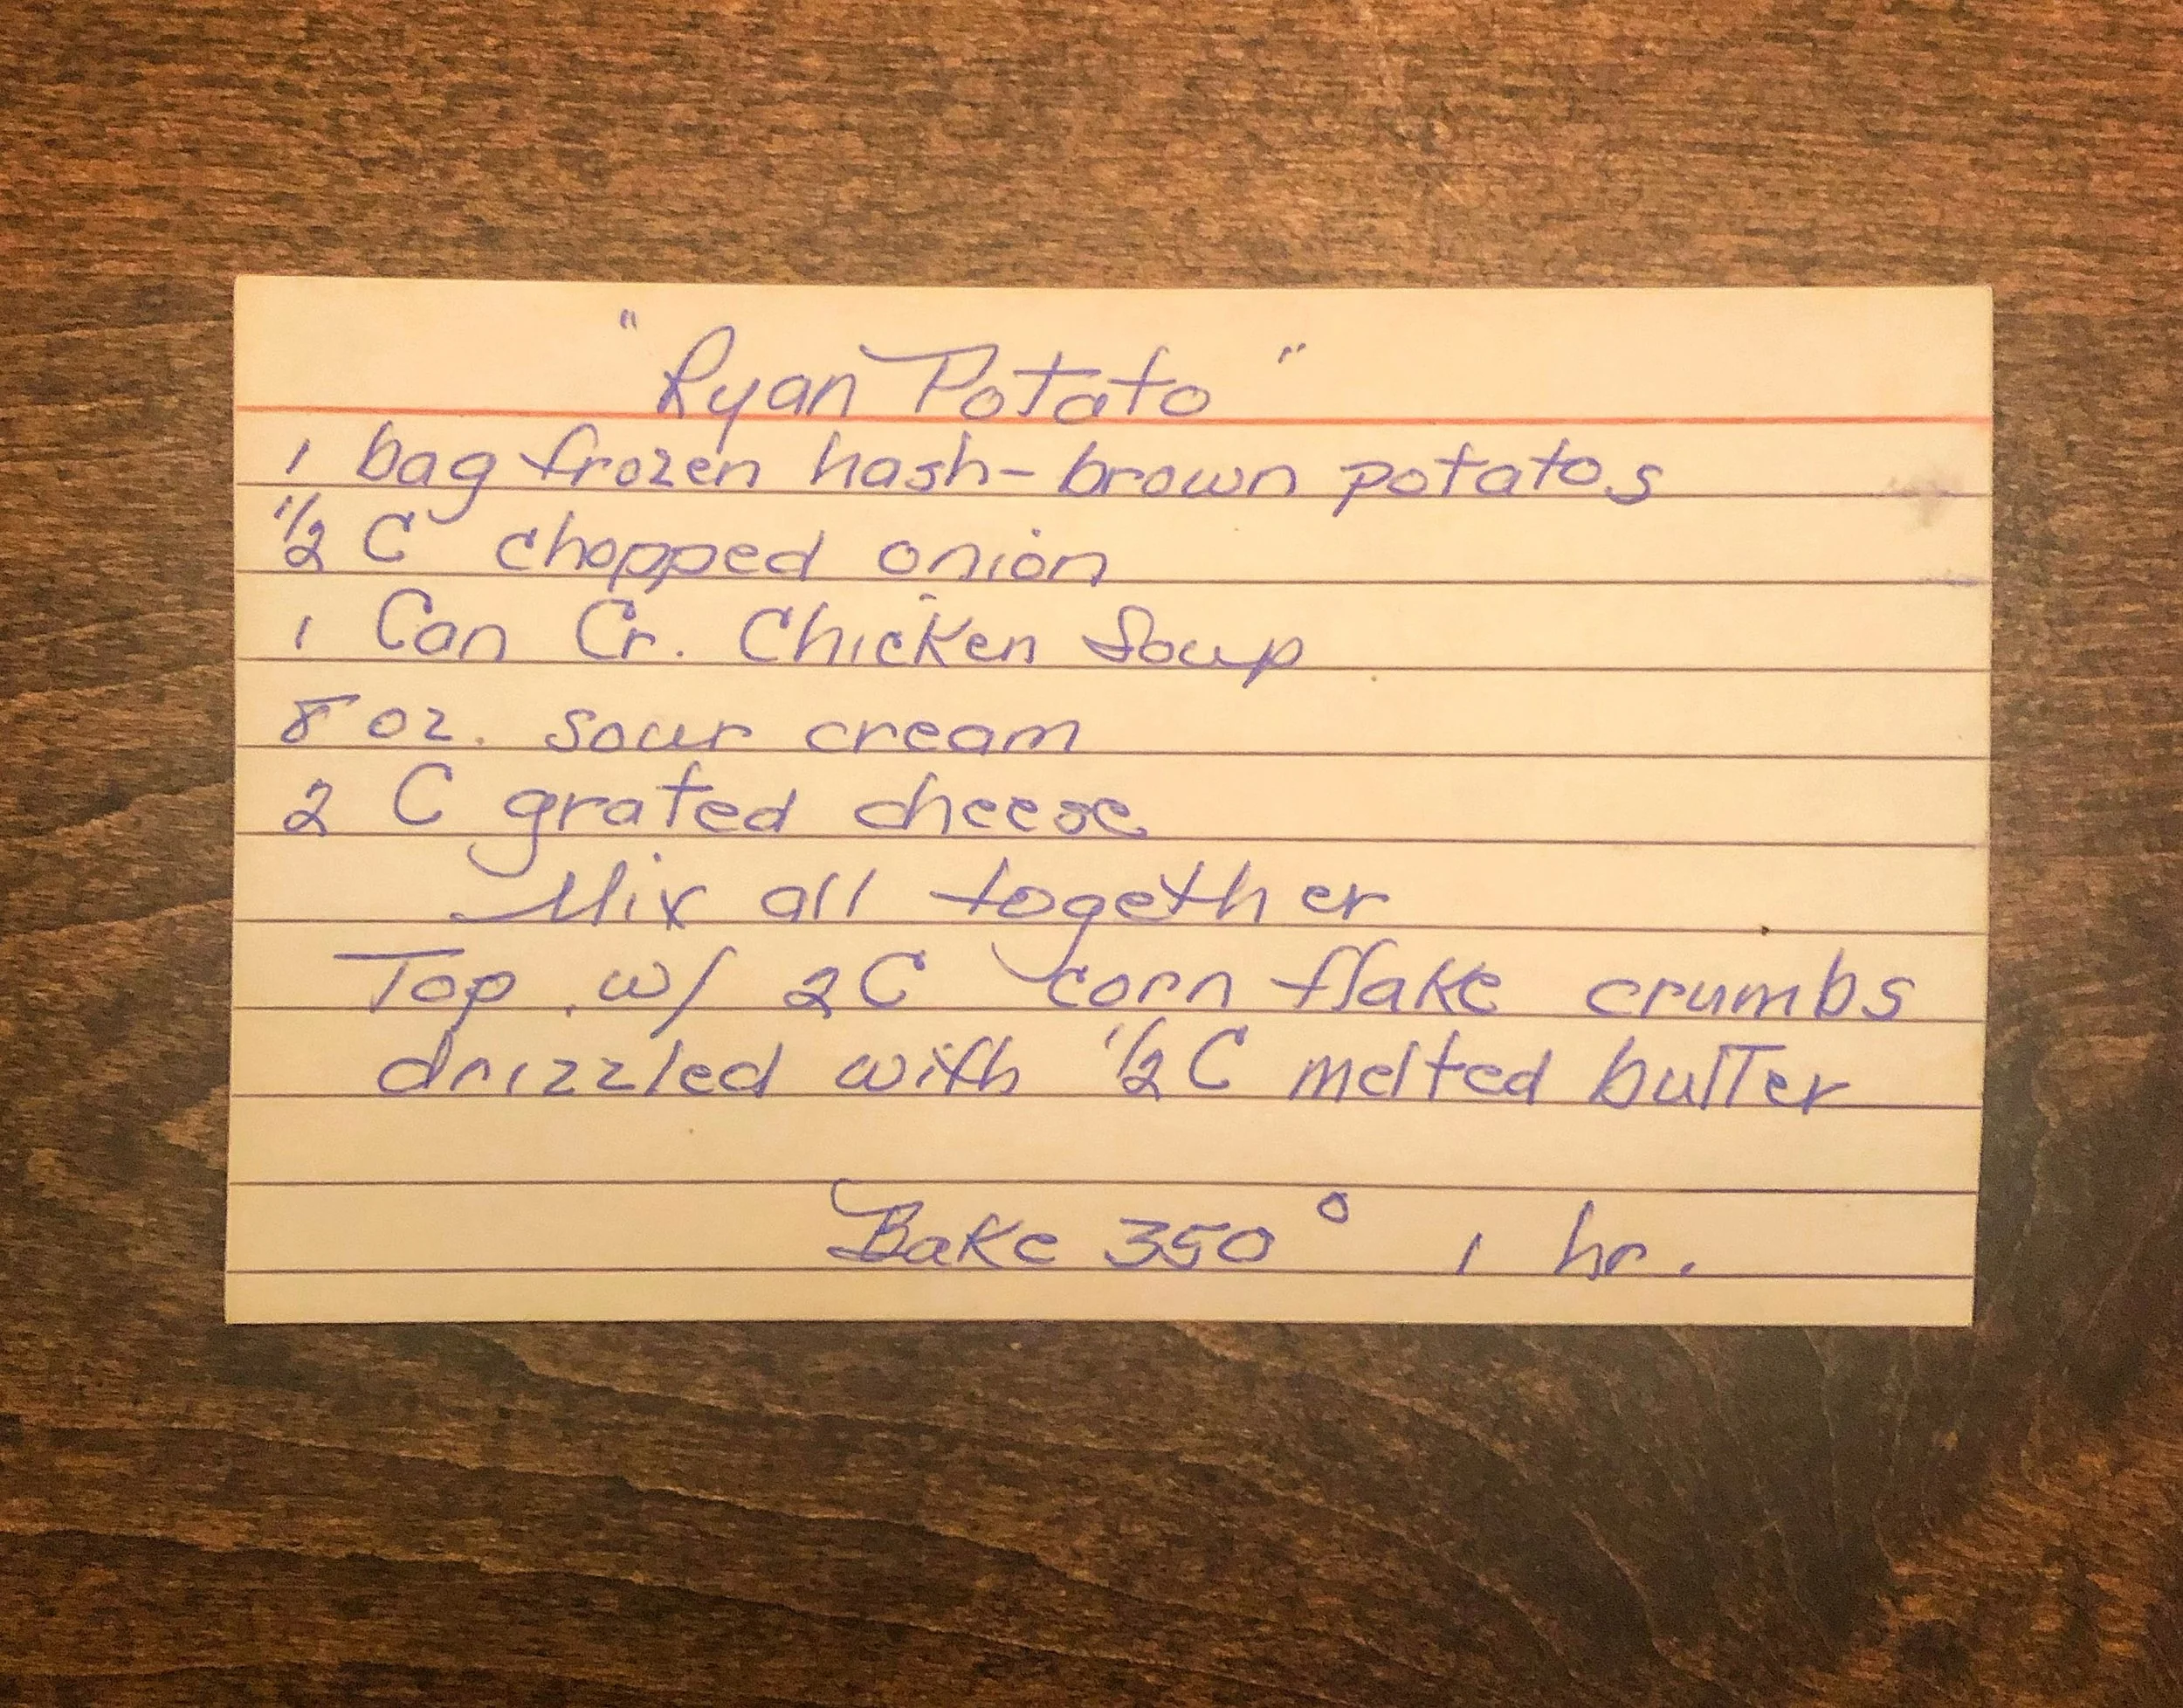 "Ryan Potato"
1 bag frozen hash-brown potatos
1/2 C chopped onion
1 Can Cr. Chicken Soup
8 oz. sour cream
2 C grated cheese
Mix all together
Top w/ 2C corn flake crumbs
drizzled with 1/2 C melted butter
Bake 350° 1 hr.